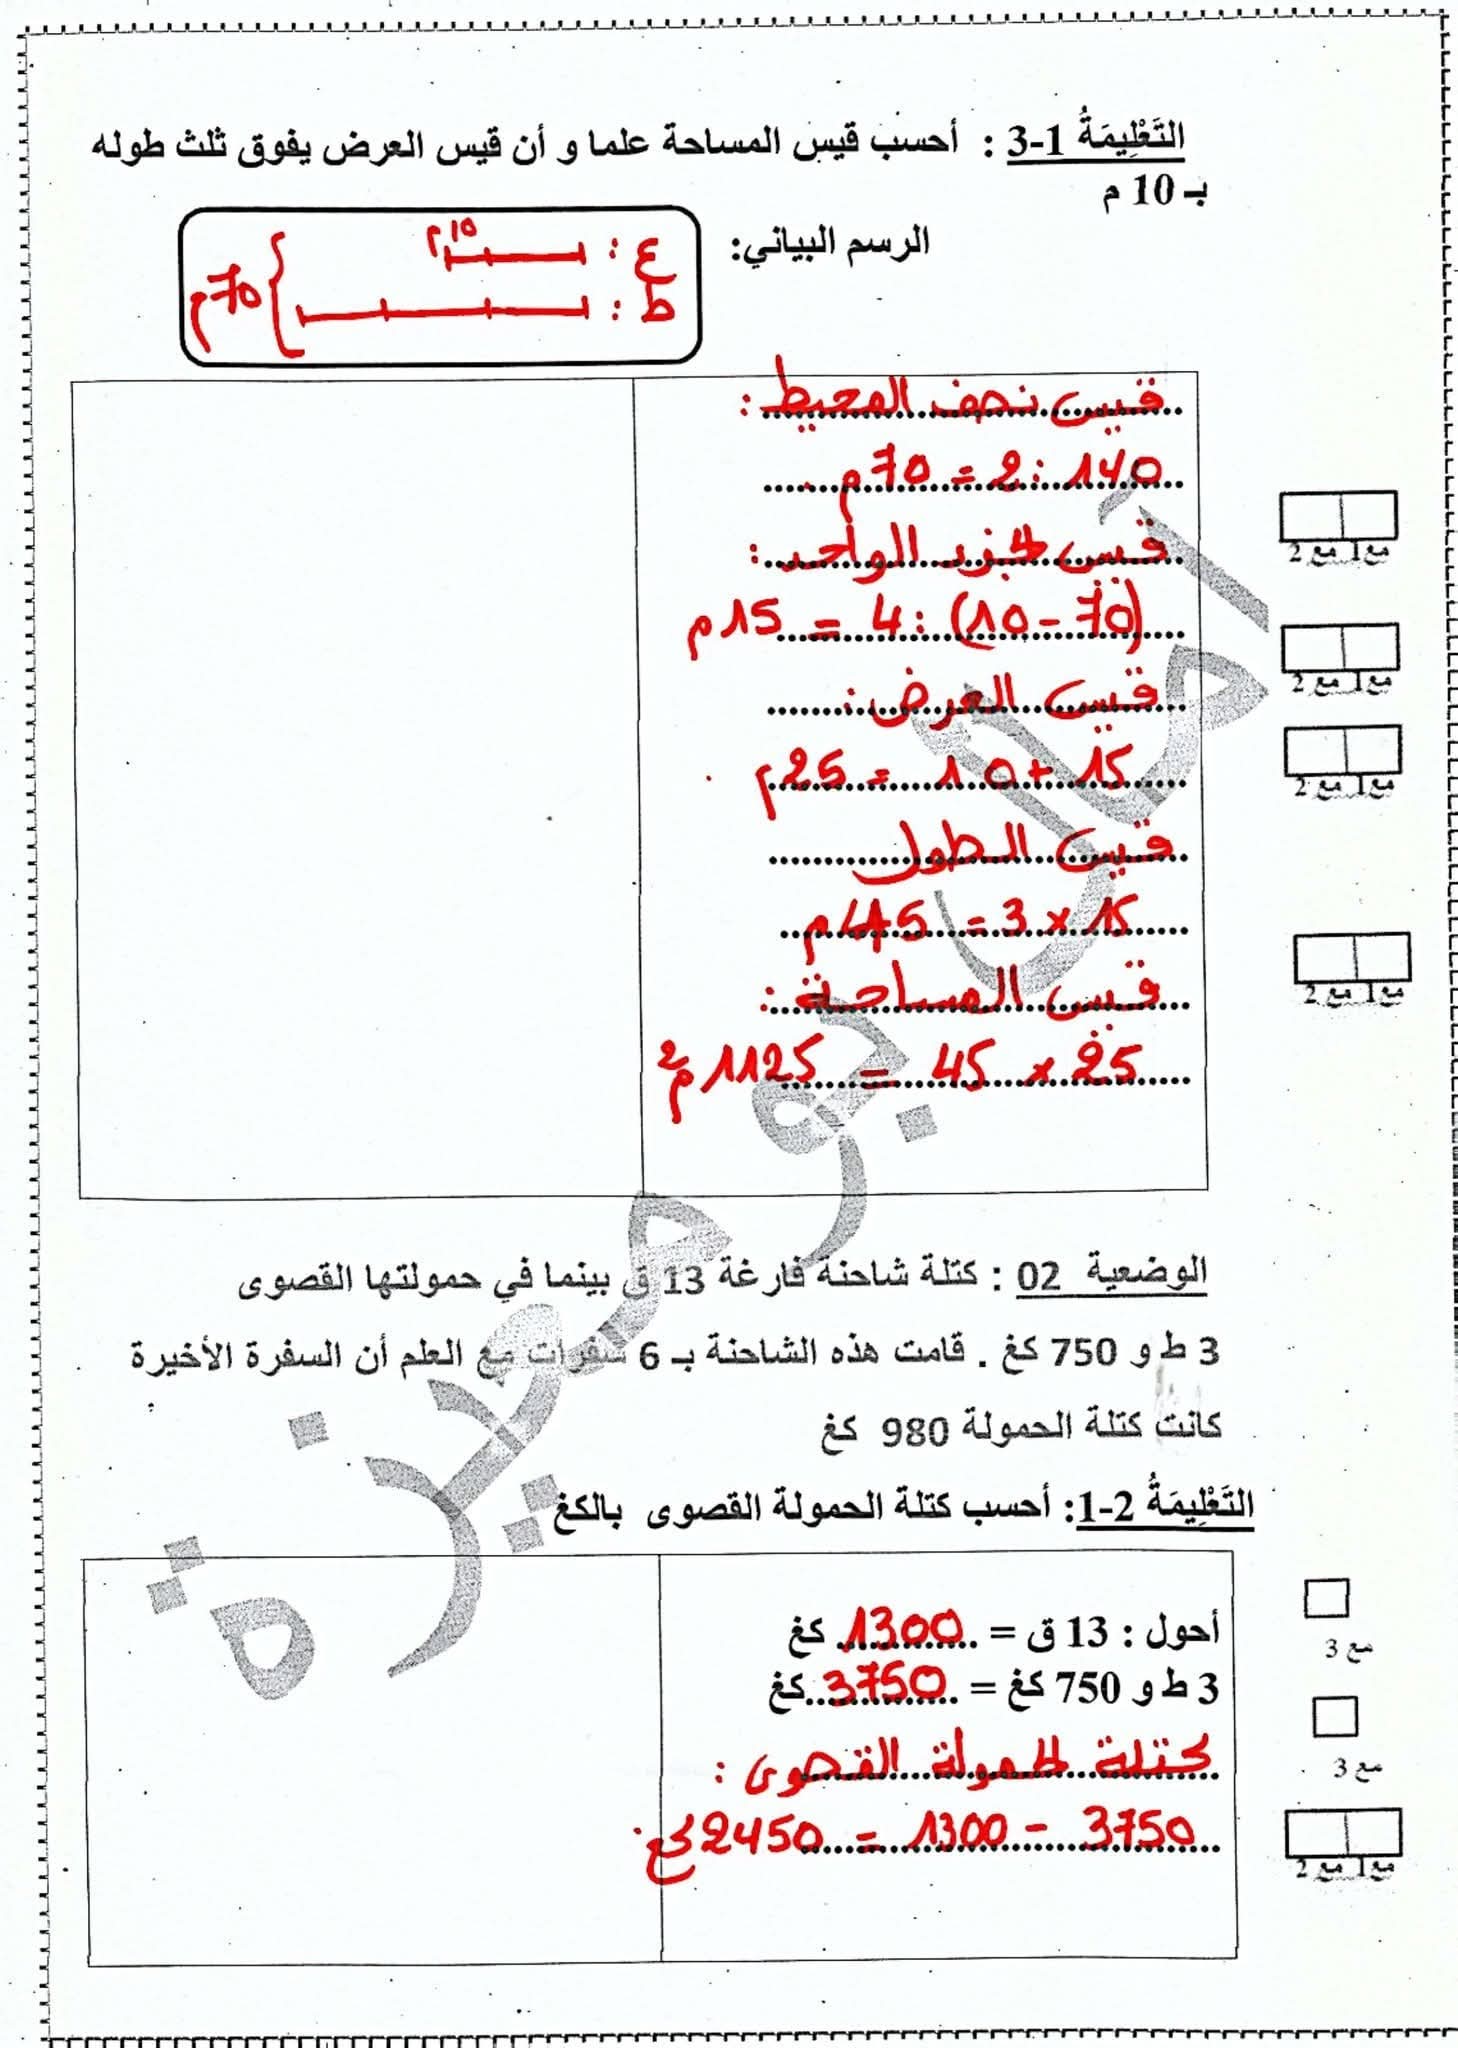 التَعْلِيمَةُ 1-3 : أحسب قيس المساحة علما و أن قيس العرض يفوق ثلث طوله
بـ 10 م
الرسم البياني:
ع : 10م
ط : 70م
قيس نصف المحيط :
140 : 2 = 70م
قيس الجزء الواحد :
(70 - 10) : 4 = 15م
قيس العرض :
15 + 10 = 25م
قيس الطول
15 × 3 = 45م
قيس المساحة :
25 × 45 = 1125م²
مع1 مع 2
مع1 مع 2
مع1 مع 2
مع1 مع 2
آمال بورميزة
الوضعية 02 : كتلة شاحنة فارغة 13 ق بينما في حمولتها القصوى
3 ط و 750 كغ . قامت هذه الشاحنة بـ 6 سفرات مع العلم أن السفرة الأخيرة
كانت كتلة الحمولة 980 كغ
التَعْلِيمَةُ 2-1: أحسب كتلة الحمولة القصوى بالكغ
أحول : 13 ق = 1300 كغ
3 ط و 750 كغ = 3750 كغ
كتلة الحمولة القصوى :
3750 - 1300 = 2450كغ
مع 3
مع 3
مع1 مع 2